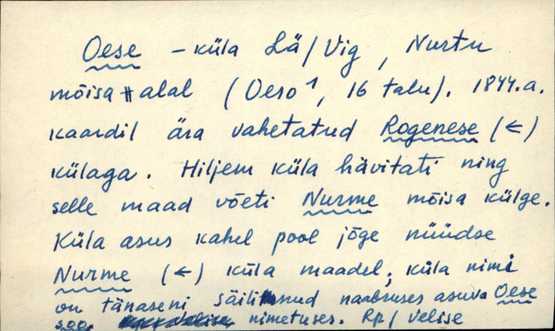 Oese – küla Lä/Vig, Nurtu
mõisa alal (Oeso¹, 16 talu). 1844.a.
kaardil ära vahetatud Rogenese (←)
külaga. Hiljem küla hävitati ning
selle maad võeti Nurme mõisa külge.
Küla asus kahel pool jõge nüüdse
Nurme (←) küla maadel, küla nimi
on tänaseni säilinud naabruses asuva Oese
soo nimetuses. Rp/ Velise